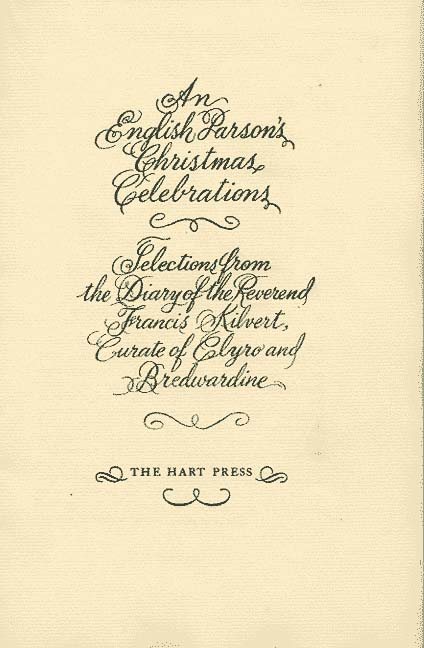 An
English Parson's
Christmas
Celebrations
Selections from
the Diary of the Reverend
Francis Kilvert,
Curate of Clyro and
Bredwardine
THE HART PRESS